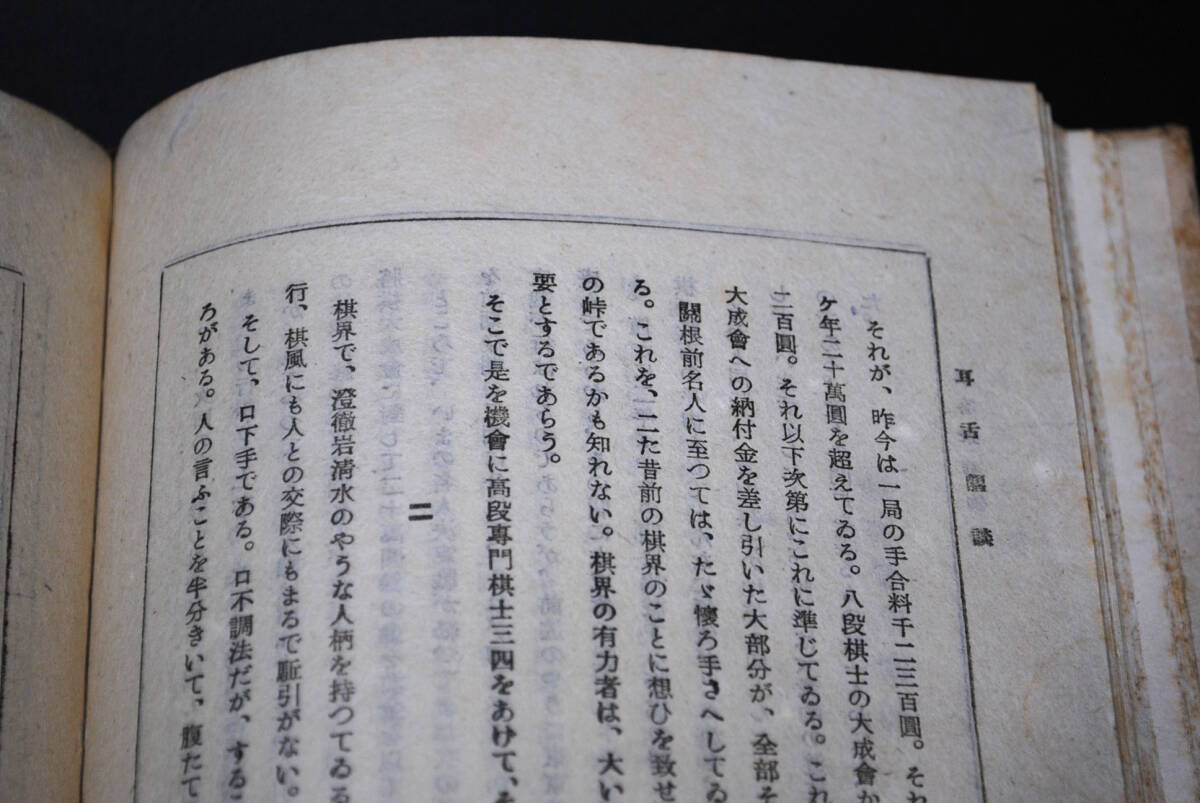 耳
舌
談
それが、昨今は一局の手合料千二三百圓。それ
ケ年二十萬圓を超えてゐる。八段棋士の大成會か
二百圓。それ以下次第にこれに準じてゐる。これ
大成會への納付金を差し引いた大部分が、全部そ
關根前名人に至つては、たゞ懷ろ手さへしてゐ
る。これを、二た昔前の棋界のことに想ひを致せ
の峠であるかも知れない。棋界の有力者は、大い
要とするであらう。
そこで是を機會に高段專門棋士三四をあけて、そ
二
棋界で、澄徹岩清水のやうな人柄を持つてゐる
行、棋風にも人との交際にもまるで駈引がない。
そして、口下手である。口不調法だが、するこ
ろがある。人の言ふことを半分きいて、腹たて